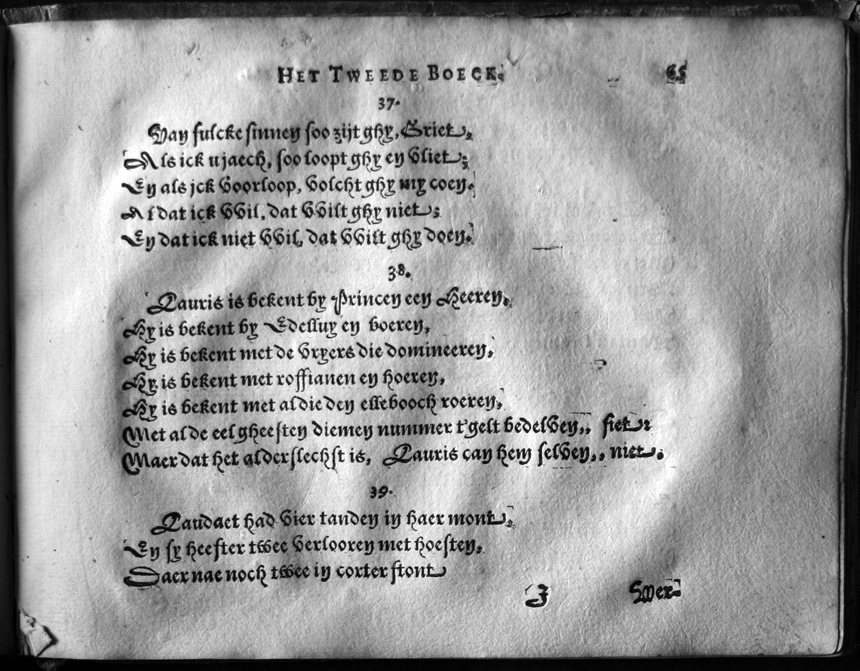 HET TWEEDE BOECK. 65
37.
Van sulcke sinnen soo zijt ghy, Griet,
Als ick u jaech, soo loopt ghy en vliet;
En als jck voorloop, volcht ghy my coen.
Al dat ick wil, dat wilt ghy niet;
En dat ick niet wil, dat wilt ghy doen.
38.
Lauris is bekent by Princen een Heeren,
Hy is bekent by Edelluy en boeren,
Hy is bekent met de vryers die domineeren,
Hy is bekent met roffianen en hoeren,
Hy is bekent met al die den ellebooch roeren,
Met al de eel gheesten diemen nummer t'gelt bedelven,, siet:
Maer dat het alderslechst is, Lauris can hem selven,, niet.
39.
Laudaet had vier tanden in haer mont,
En sy heefter twee verlooren met hoesten,
Daer nae noch twee in corter stont
I Wer-